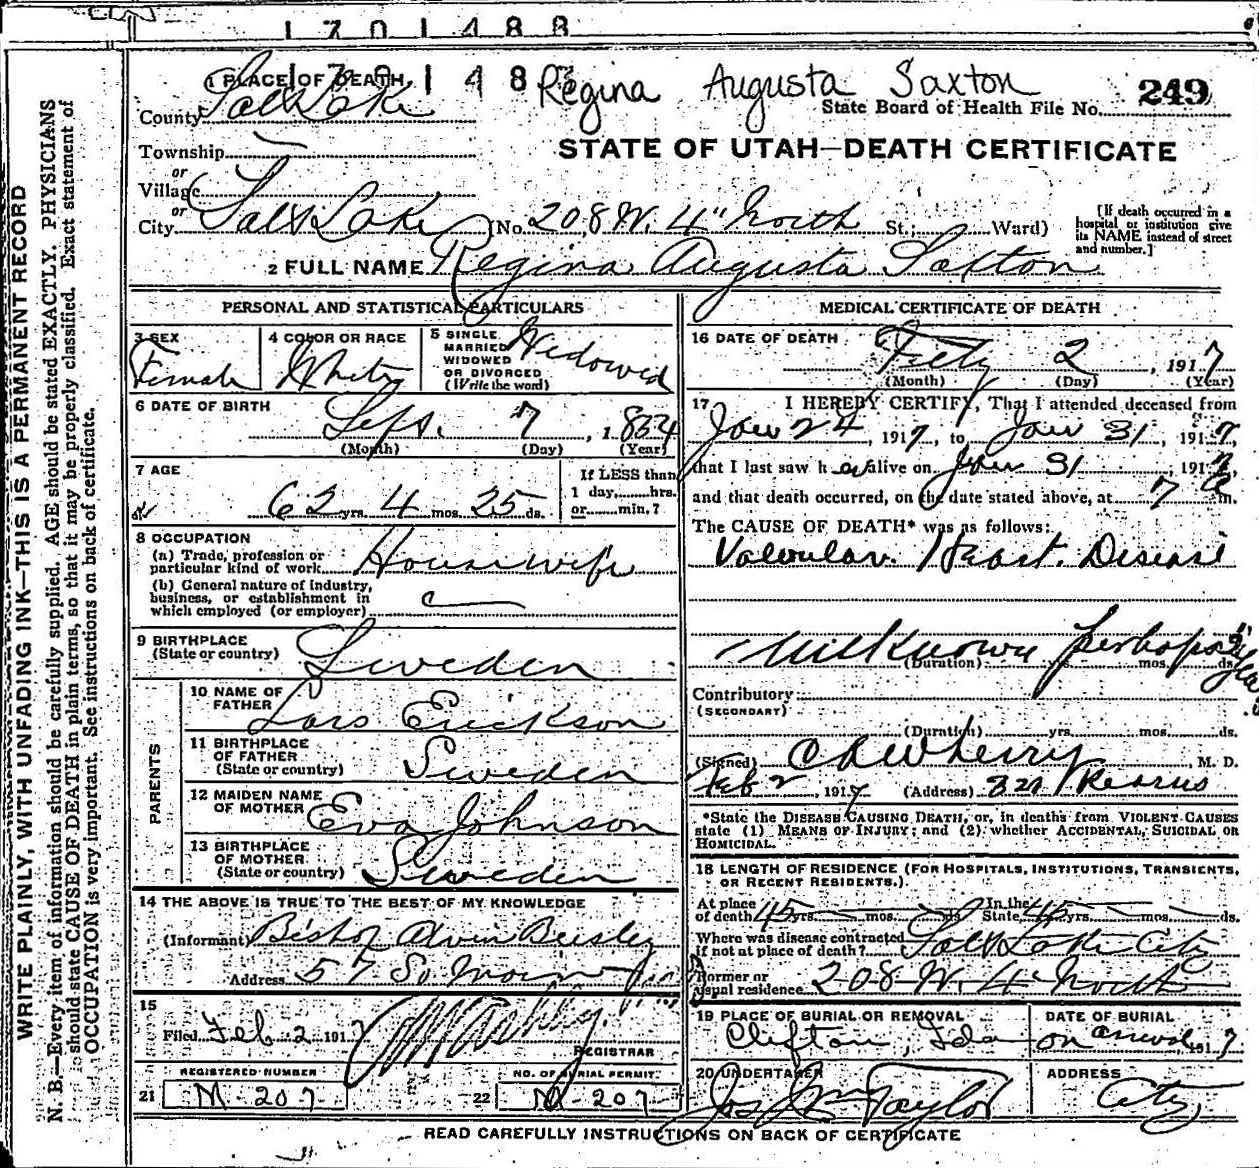 1701488
1 PLACE OF DEATH
Regina Augusta Saxton
State Board of Health File No. 249
County Salt Lake
STATE OF UTAH—DEATH CERTIFICATE
Township
or
Village
or
City Salt Lake (No. 208 W. 4" North St.; Ward)
[If death occurred in a hospital or institution give its NAME instead of street and number.]
2 FULL NAME Regina Augusta Saxton
PERSONAL AND STATISTICAL PARTICULARS
3 SEX Female
4 COLOR OR RACE White
5 SINGLE, MARRIED WIDOWED OR DIVORCED (Write the word) Widowed
6 DATE OF BIRTH Sept. 7, 1854
(Month) (Day) (Year)
7 AGE
62 yrs. 4 mos. 25 ds.
If LESS than 1 day, hrs. or min.?
8 OCCUPATION
(a) Trade, profession or particular kind of work Housewife
(b) General nature of industry, business, or establishment in which employed (or employer)
9 BIRTHPLACE
(State or country) Sweden
PARENTS
10 NAME OF FATHER Lars Erickson
11 BIRTHPLACE OF FATHER
(State or country) Sweden
12 MAIDEN NAME OF MOTHER Eva Johnson
13 BIRTHPLACE OF MOTHER
(State or country) Sweden
14 THE ABOVE IS TRUE TO THE BEST OF MY KNOWLEDGE
(Informant) Bishop Alvin Beesley
Address 57 So. Main
15
Filed Feb 2 1917
REGISTRAR
REGISTERED NUMBER
NO. OF BURIAL PERMIT.
21 M-207
22 M-207
MEDICAL CERTIFICATE OF DEATH
16 DATE OF DEATH Feby 2, 1917
(Month) (Day) (Year)
17 I HEREBY CERTIFY, That I attended deceased from
Jan 24, 1917, to Jan 31, 1917,
that I last saw h er alive on Jan 31, 1917,
and that death occurred, on the date stated above, at 7 a m.
The CAUSE OF DEATH* was as follows:
Valvular Heart Disease
Unknown perhaps
(Duration) yrs. mos. ds.
Contributory
(SECONDARY)
(Duration) yrs. mos. ds.
(Signed) Wherry, M. D.
Feb 2, 1917 (Address) 327 Kearns
*State the DISEASE CAUSING DEATH, or, in deaths from VIOLENT CAUSES
state (1) MEANS OF INJURY; and (2) whether ACCIDENTAL, SUICIDAL OR
HOMICIDAL.
18 LENGTH OF RESIDENCE (FOR HOSPITALS, INSTITUTIONS, TRANSIENTS,
OR RECENT RESIDENTS.)
At place of death 45 yrs. mos. ds. In the State, 45 yrs. mos. ds.
Where was disease contracted if not at place of death? Salt Lake City
Former or usual residence 208 W. 4 North
19 PLACE OF BURIAL OR REMOVAL Clifton, Ida
DATE OF BURIAL on arrival, 1917
20 UNDERTAKER Jos Wm Taylor
ADDRESS City
READ CAREFULLY INSTRUCTIONS ON BACK OF CERTIFICATE
WRITE PLAINLY, WITH UNFADING INK—THIS IS A PERMANENT RECORD
N. B.—Every item of information should be carefully supplied. AGE should be stated EXACTLY. PHYSICIANS
should state CAUSE OF DEATH in plain terms, so that it may be properly classified. Exact statement of
OCCUPATION is very important. See instructions on back of certificate.